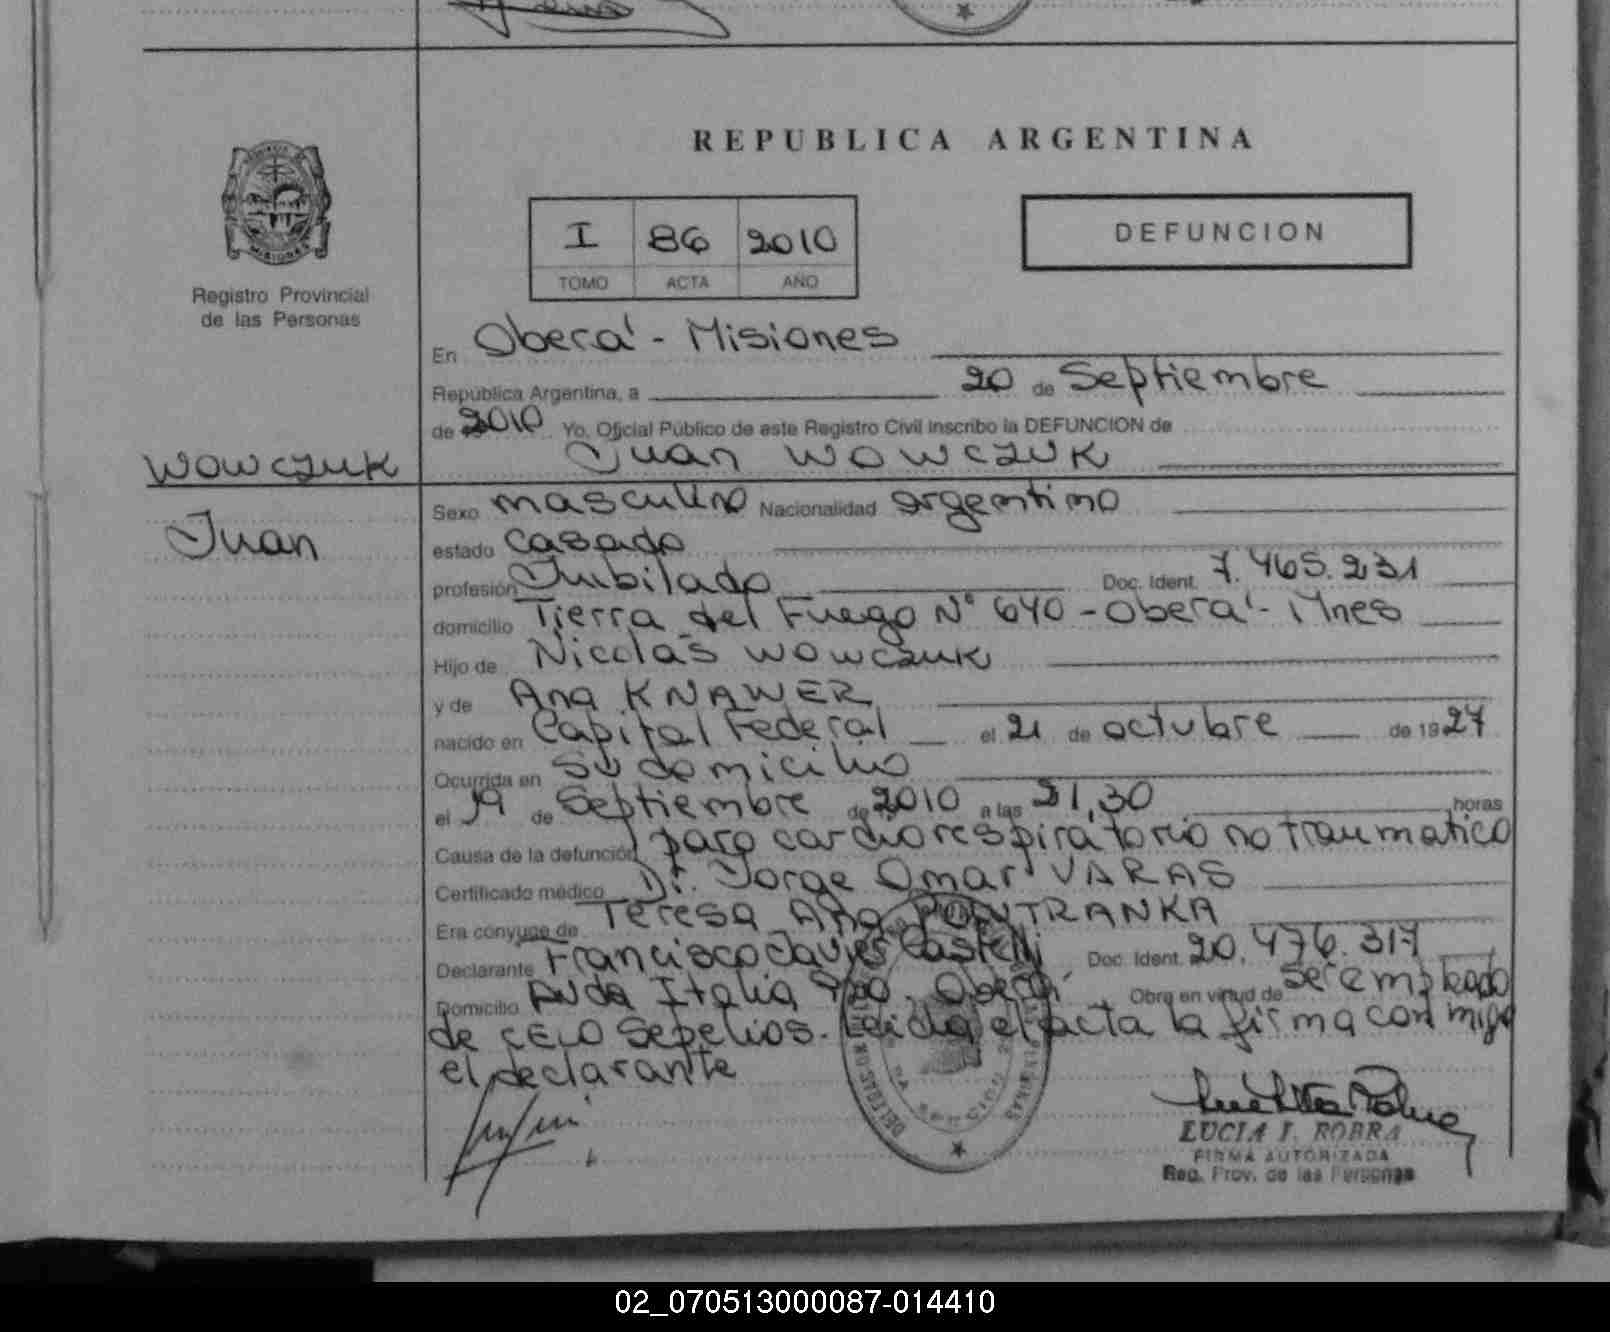 REPUBLICA ARGENTINA
I 86 2010
TOMO ACTA AÑO
DEFUNCION
Registro Provincial
de las Personas
En Oberá - Misiones
República Argentina, a 20 de Septiembre
de 2010 Yo, Oficial Público de este Registro Civil inscribo la DEFUNCION de
WOWCZUK
Juan WOWCZUK
Juan
Sexo masculino Nacionalidad argentino
estado casado
profesión Jubilado Doc. Ident. 7.465.231
domicilio Tierra del Fuego N° 640 - Oberá - Mnes
Hijo de Nicolás WOWCZUK
y de Ana KNAWER
nacido en Capital Federal el 21 de octubre de 1927
Ocurrida en su domicilio
el 19 de Septiembre de 2010 a las 21,30 horas
Causa de la defunción paro cardiorespiratorio no traumatico
Certificado médico Dr. Jorge Omar VARAS
Era cónyuge de Teresa Ana
Declarante Francisco Javier Castelli Doc. Ident. 20.476.317
Domicilio Avda Italia Oberá Obra en virtud de ser empleado
de CELO Sepelios. Leida el acta la firma con migo
el declarante
LUCIA I. ROBRA
FIRMA AUTORIZADA
Reg. Prov. de las Personas
02_070513000087-014410